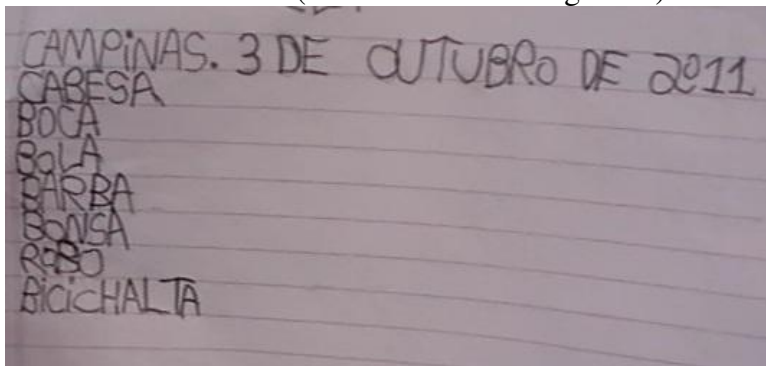 CAMPINAS. 3 DE OUTUBRO DE 2011
CABESA
BOCA
BOLA
BARBA
BONSA
ROBO
BICICHALTA